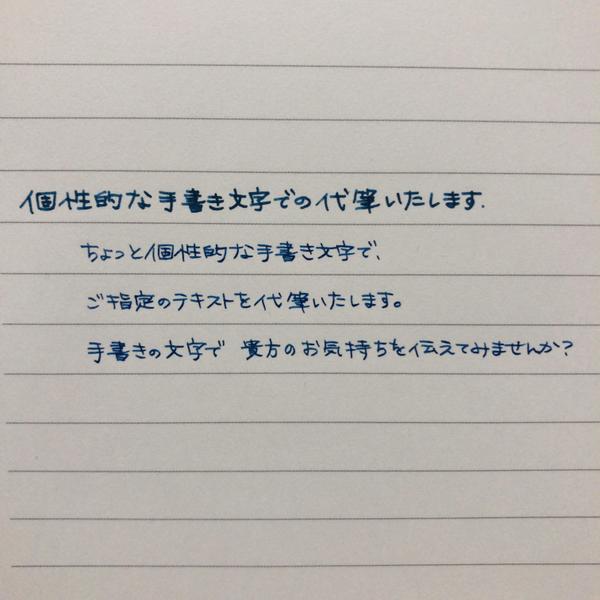 個性的な手書き文字での代筆いたします.
ちょっと個性的な手書き文字で、
ご指定のテキストを代筆いたします。
手書きの文字で 貴方のお気持ちを伝えてみませんか?